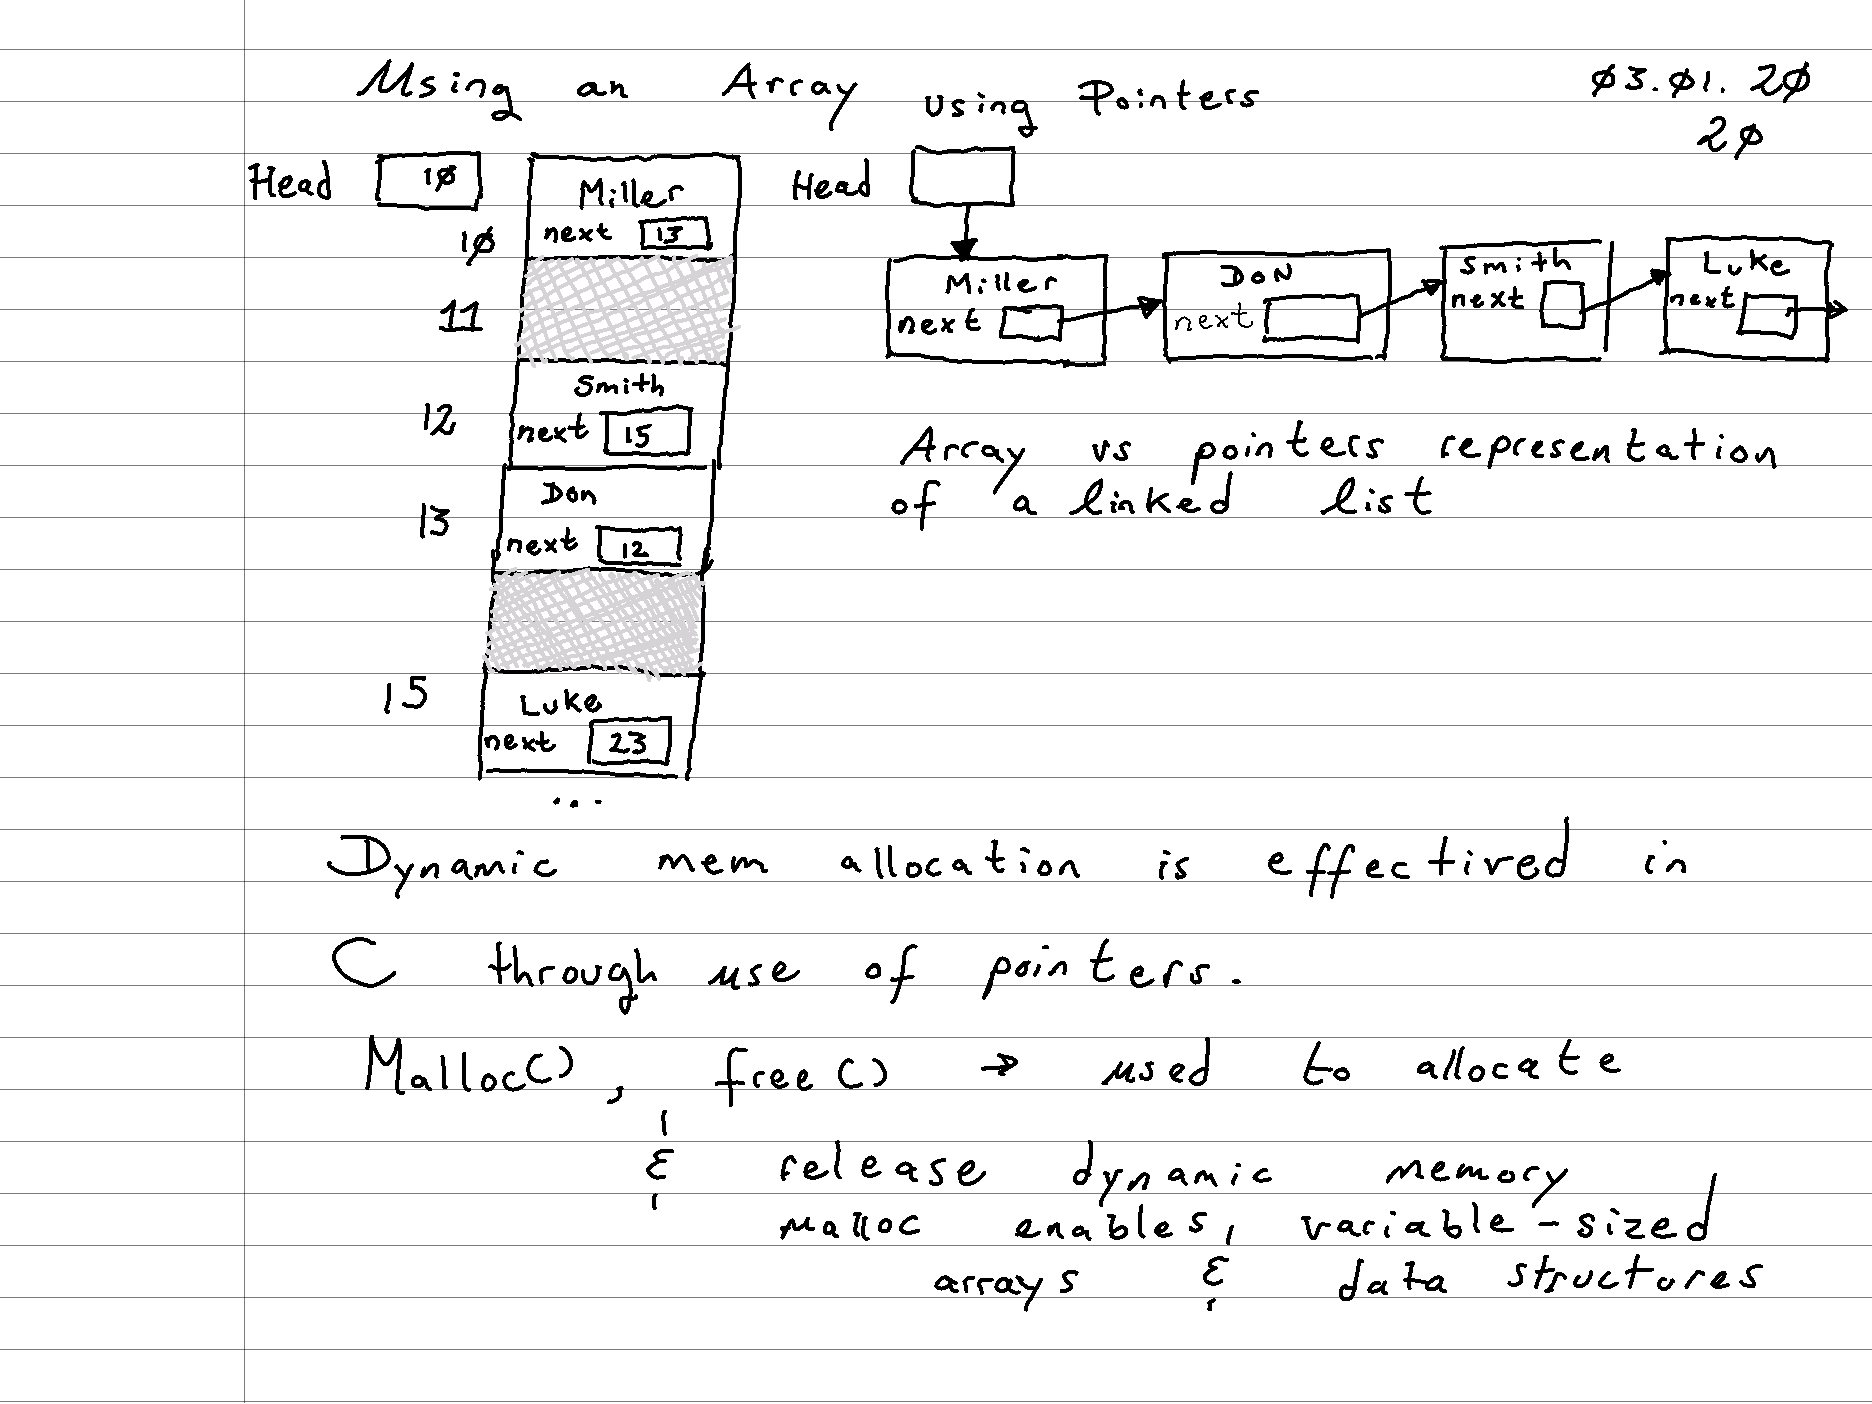 Using an Array
using Pointers
Ø3.Ø1.2Ø
2Ø
Head 1Ø
Miller
next 13
1Ø
11
Smith
12 next 15
Don
13
next 12
15
Luke
next 23
...
Head
Miller
next
DON
next
Smith
next
Luke
next
Array vs pointers representation
of a linked list
Dynamic mem allocation is effectived in
C through use of pointers.
Malloc(), free() → used to allocate
& release dynamic memory
malloc enables, variable-sized
arrays & data structures